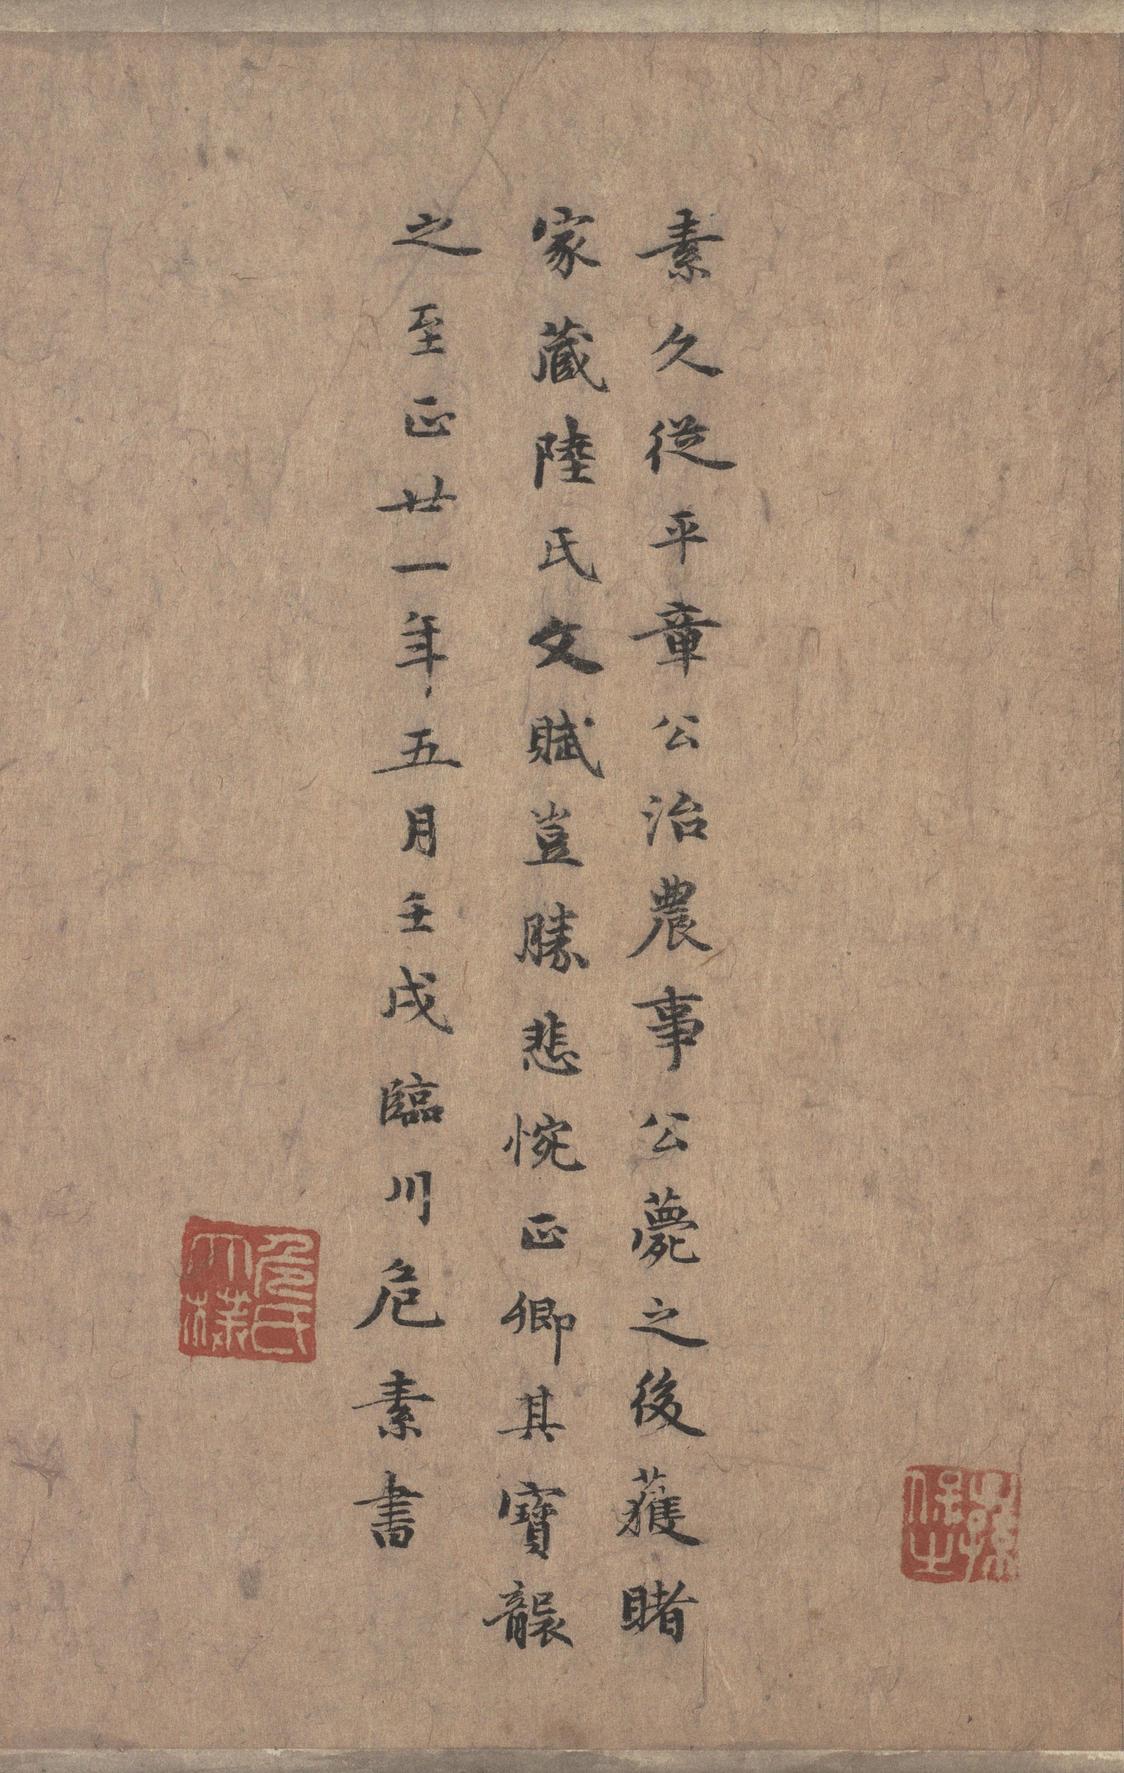 素久從平章公治農事公薨之後獲睹
家藏陸氏文賦豈勝悲惋正卿其寶襲
之至正廿一年五月壬戌臨川危素書
危氏太樸
孫保士